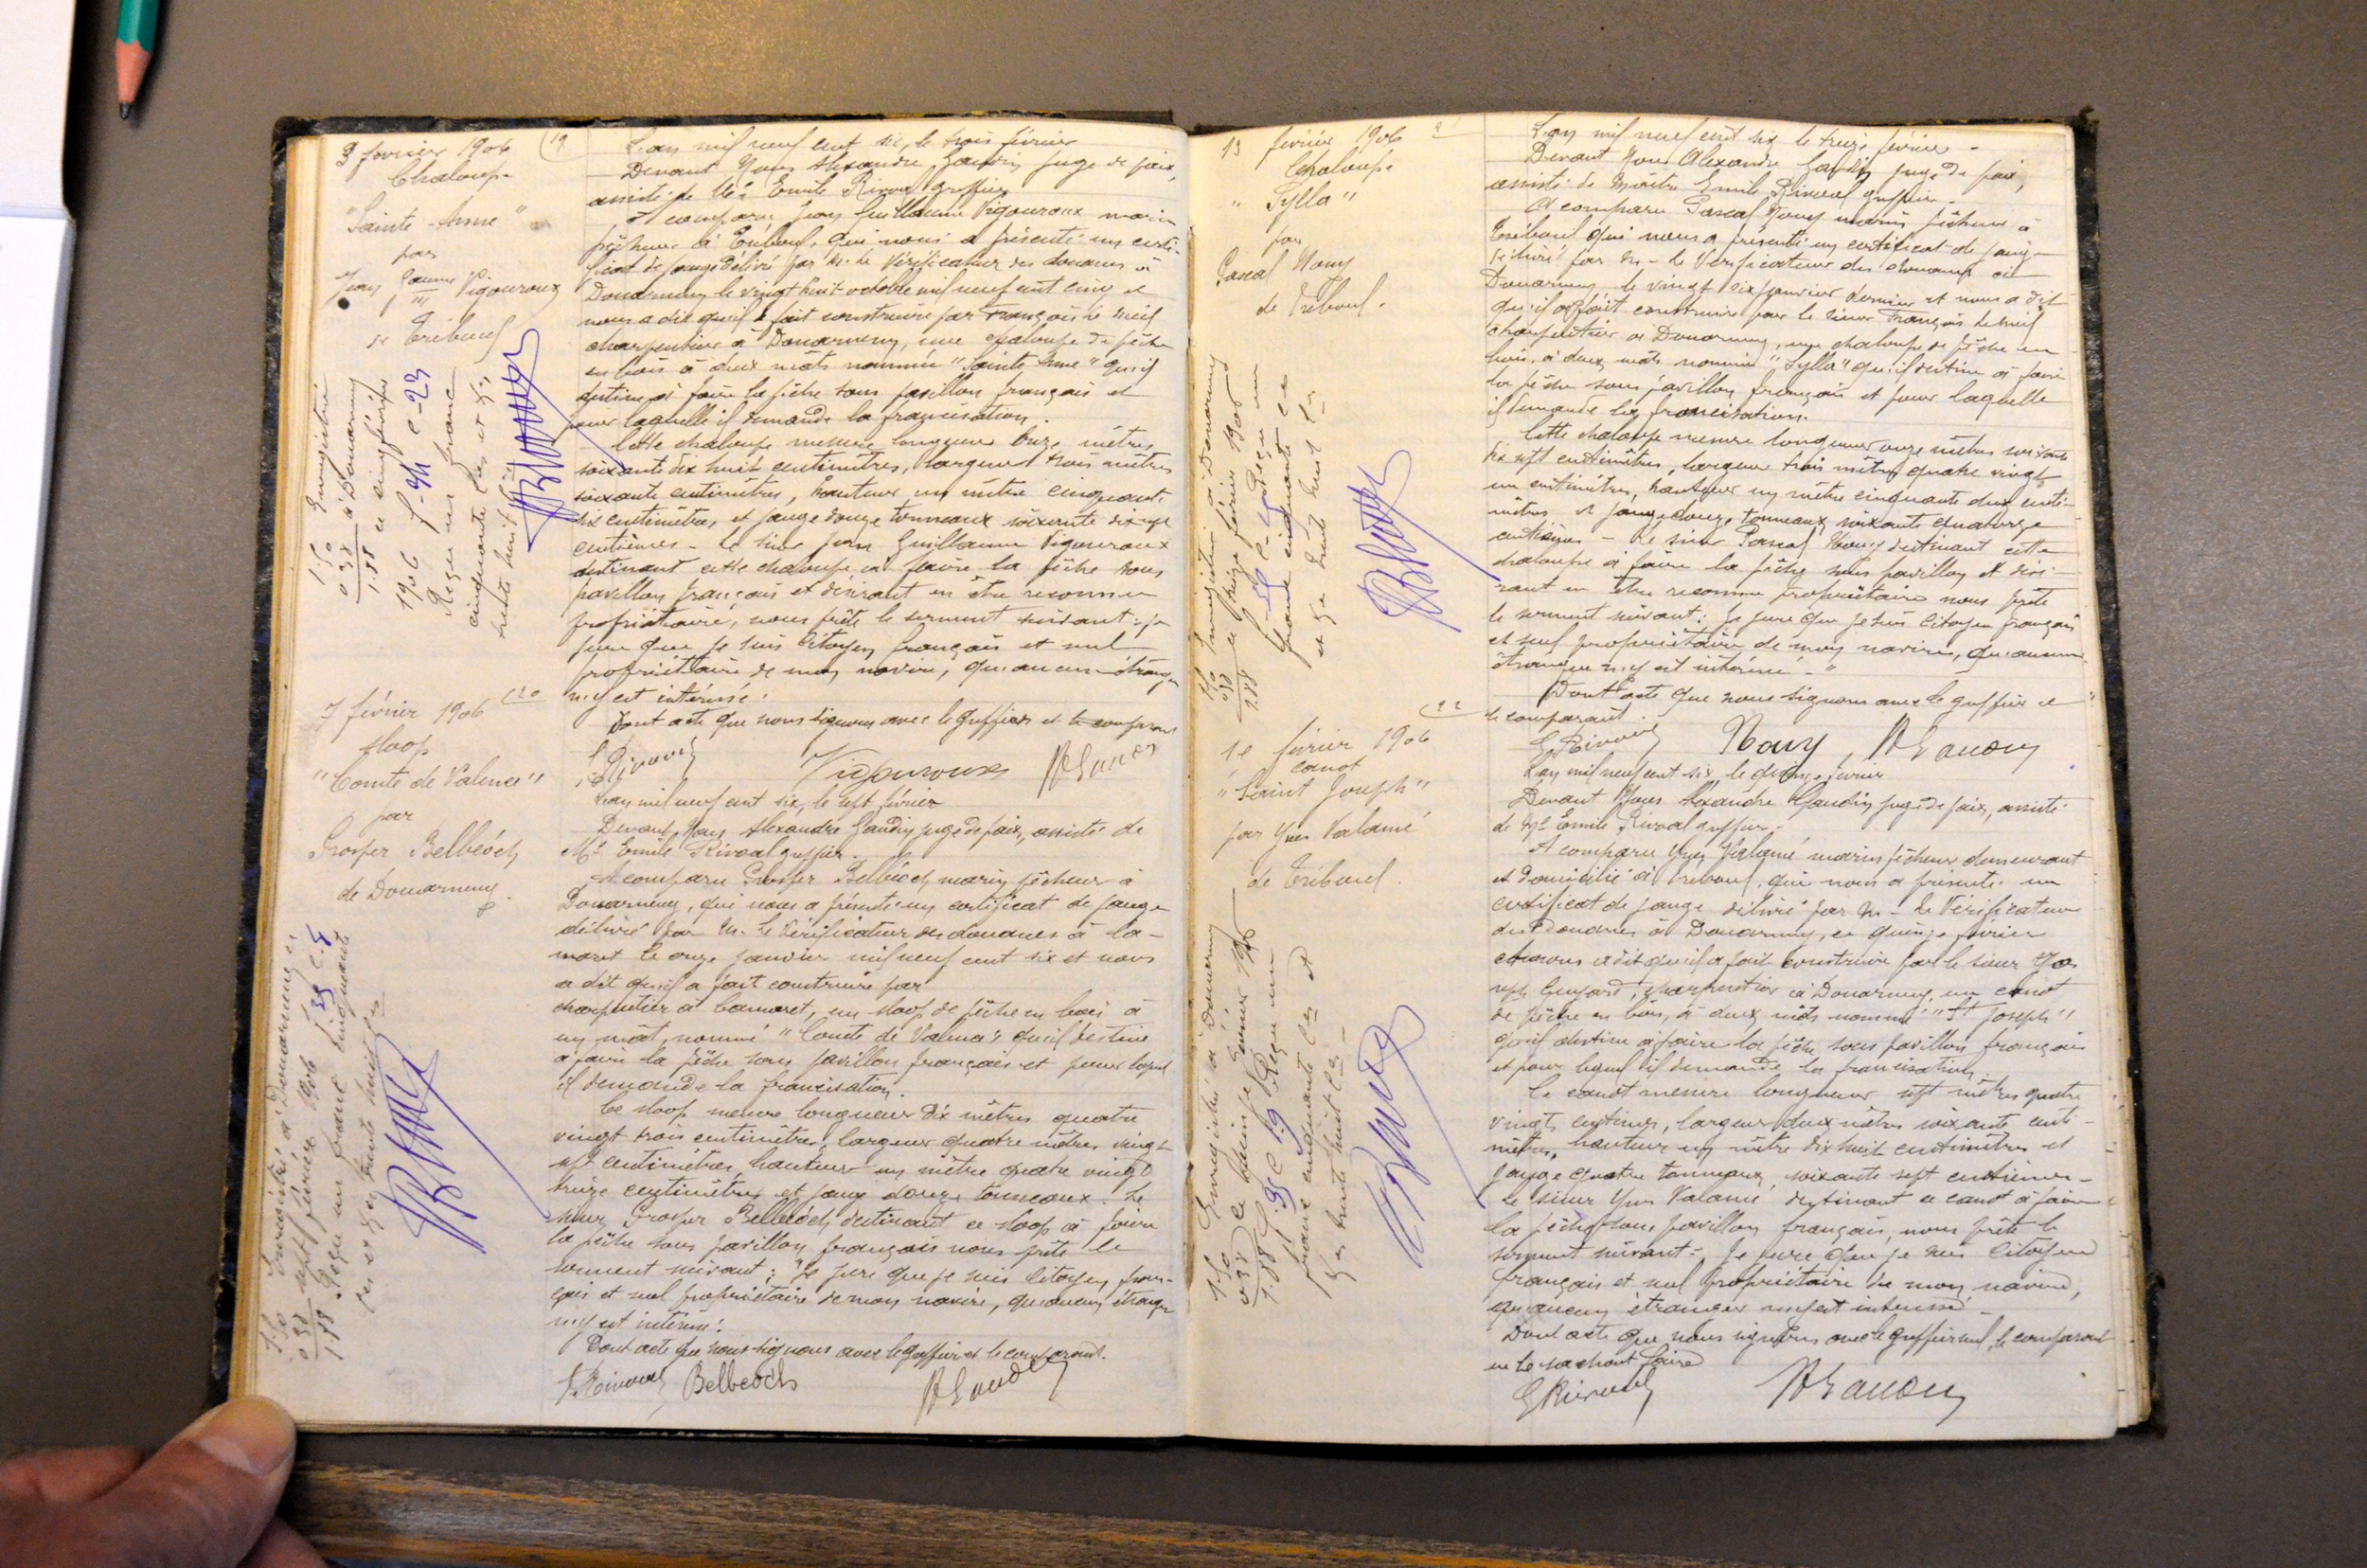 3 février 1906
Chaloupe
"Sainte-Anne"
par
Jean Guillaume Vigouroux
de Tréboul
19
L'an mil neuf cent six, le trois février
Devant Nous Alexandre Gaudin juge de paix,
assisté de Me Emile Rivoal greffier
A comparu Jean Guillaume Vigouroux marin
pêcheur à Tréboul, qui nous a présenté un certi-
ficat de jauge délivré par M. le Vérificateur des douanes à
Douarnenez le vingt huit octobre mil neuf cent cinq et
nous a dit qu'il a fait construire par François Le
charpentier à Douarnenez, une chaloupe de pêche
en bois à deux mâts nommée "Sainte Anne" qu'il
destine à faire la pêche sous pavillon français et
pour laquelle il demande la francisation.
Cette chaloupe mesure longueur onze mètres
soixante dix huit centimètres, largeur trois mètres
soixante centimètres, hauteur un mètre cinquante
six centimètres, et jauge douze tonneaux soixante
centièmes - Le sieur Jean Guillaume Vigouroux
destinant cette chaloupe à faire la pêche sous
pavillon français et désirant en être reconnu
propriétaire, nous prête le serment suivant : je
jure que je suis Citoyen français et seul
propriétaire de mon navire, qu'aucun étranger
n'y est intéressé.
Dont acte que nous signons avec le greffier et le comparant
E Rivoal Vigouroux A Gaudin
Enregistré
à Douarnenez
ce cinq février
1906 f - 94 c - 23
Reçu un franc
cinquante ces et Xes
trente huit ces
1.50
0.38
1.88
7 février 1906
20
sloop
"Comte de Valence"
par
Prosper Belbéoch
de Douarnenez
L'an mil neuf cent six, le sept février
Devant Nous Alexandre Gaudin juge de paix, assisté de
Me Emile Rivoal greffier.
A comparu Prosper Belbéoch marin pêcheur à
Douarnenez, qui nous a présenté un certificat de jauge
délivré par M. le Vérificateur des douanes à Ca-
maret le onze janvier mil neuf cent six et nous
a dit qu'il a fait construire par
charpentier à Camaret, un sloop de pêche en bois à
un mât, nommé "Comte de Valence" qu'il destine
à faire la pêche sous pavillon français et pour lequel
il demande la francisation.
Ce sloop mesure longueur dix mètres quatre
vingt trois centimètres, largeur quatre mètres vingt
sept centimètres, hauteur un mètre quatre vingt
treize centimètres et jauge douze tonneaux. Le
sieur Prosper Belbéoch destinant ce sloop à faire
la pêche sous pavillon français nous prête le
serment suivant : "Je jure que je suis Citoyen fran-
çais et seul propriétaire de mon navire, qu'aucun étranger
n'y est intéressé.
Dont acte que nous signons avec le greffier et le comparant.
E. Rivoal Belbeoch A Gaudin
Enregistré à Douarnenez ce
sept février 1906 f 95 c. 5
Reçu un franc cinquante
ces et Xes trente huit ces
1.50
0.38
1.88
13 février 1906
21
Chaloupe
"Sylla"
par
Pascal Nouy
de Tréboul.
L'an mil neuf cent six le treize février -
Devant Nous Alexandre Gaudin juge de paix,
assisté de Maître Emile Rivoal greffier.
A comparu Pascal Nouy marin pêcheur à
Tréboul qui nous a présenté un certificat de jauge
délivré par M - Le Vérificateur des douanes à
Douarnenez, le vingt six janvier dernier et nous a dit
qu'il a fait construire par le sieur François
charpentier à Douarnenez, une chaloupe de pêche en
bois, à deux mâts nommée "Sylla" qu'il destine à faire
la pêche sous pavillon français et pour laquelle
il demande la francisation.
Cette chaloupe mesure longueur onze mètres soixante
dix sept centimètres, largeur trois mètres quatre vingt
un centimètres, hauteur un mètre cinquante deux centi-
mètres et jauge douze tonneaux soixante quatorze
centièmes - Le sieur Pascal Nouy destinant cette
chaloupe à faire la pêche sous pavillon et dési-
rant en être reconnu propriétaire nous prête
le serment suivant : Je jure que je suis Citoyen français
et seul propriétaire de mon navire, qu'aucun
étranger n'y est intéressé - "
Dont acte que nous signons avec le greffier et
le comparant.
E. Rivoal Nouy A Gaudin
Enregistré à Douarnenez
ce treize février 1906
Reçu un
franc cinquante ces
et Xes trente huit ces
1.50
0.38
1.88
15 février 1906
22
canot
"Saint Joseph"
par Yves Valamé
de Tréboul.
L'an mil neuf cent six, le quinze février
Devant Nous Alexandre Gaudin juge de paix, assisté
de Me Emile Rivoal greffier -
A comparu Yves Valamé marin pêcheur demeurant
et domicilié à Tréboul, qui nous a présenté un
certificat de jauge délivré par M - Le Vérificateur
des Douanes à Douarnenez, ce quinze février
et nous a dit qu'il a fait construire par le sieur Jo
seph charpentier à Douarnenez, un canot
de pêche en bois, à deux mâts nommé "St Joseph"
qu'il destine à faire la pêche sous pavillon français
et pour lequel il demande la francisation.
Ce canot mesure longueur sept mètres quatre
vingts centimes, largeur deux mètres soixante centi-
mètres, hauteur un mètre dix huit centimètres et
jauge quatre tonneaux, soixante sept centièmes -
Le sieur Yves Valamé destinant ce canot à faire
la pêche sous pavillon français, nous prête le
serment suivant : Je jure que je suis Citoyen
français et seul propriétaire de mon navire,
qu'aucun étranger n'y est intéressé -
Dont acte que nous signons avec le greffier seul, le comparant
ne le sachant faire
E Rivoal A Gaudin
Enregistré à Douarnenez
ce quinze février 1906
f 95 c 19 Reçu un
franc cinquante ces et
Xes trente huit ces -
1.50
0.38
1.88